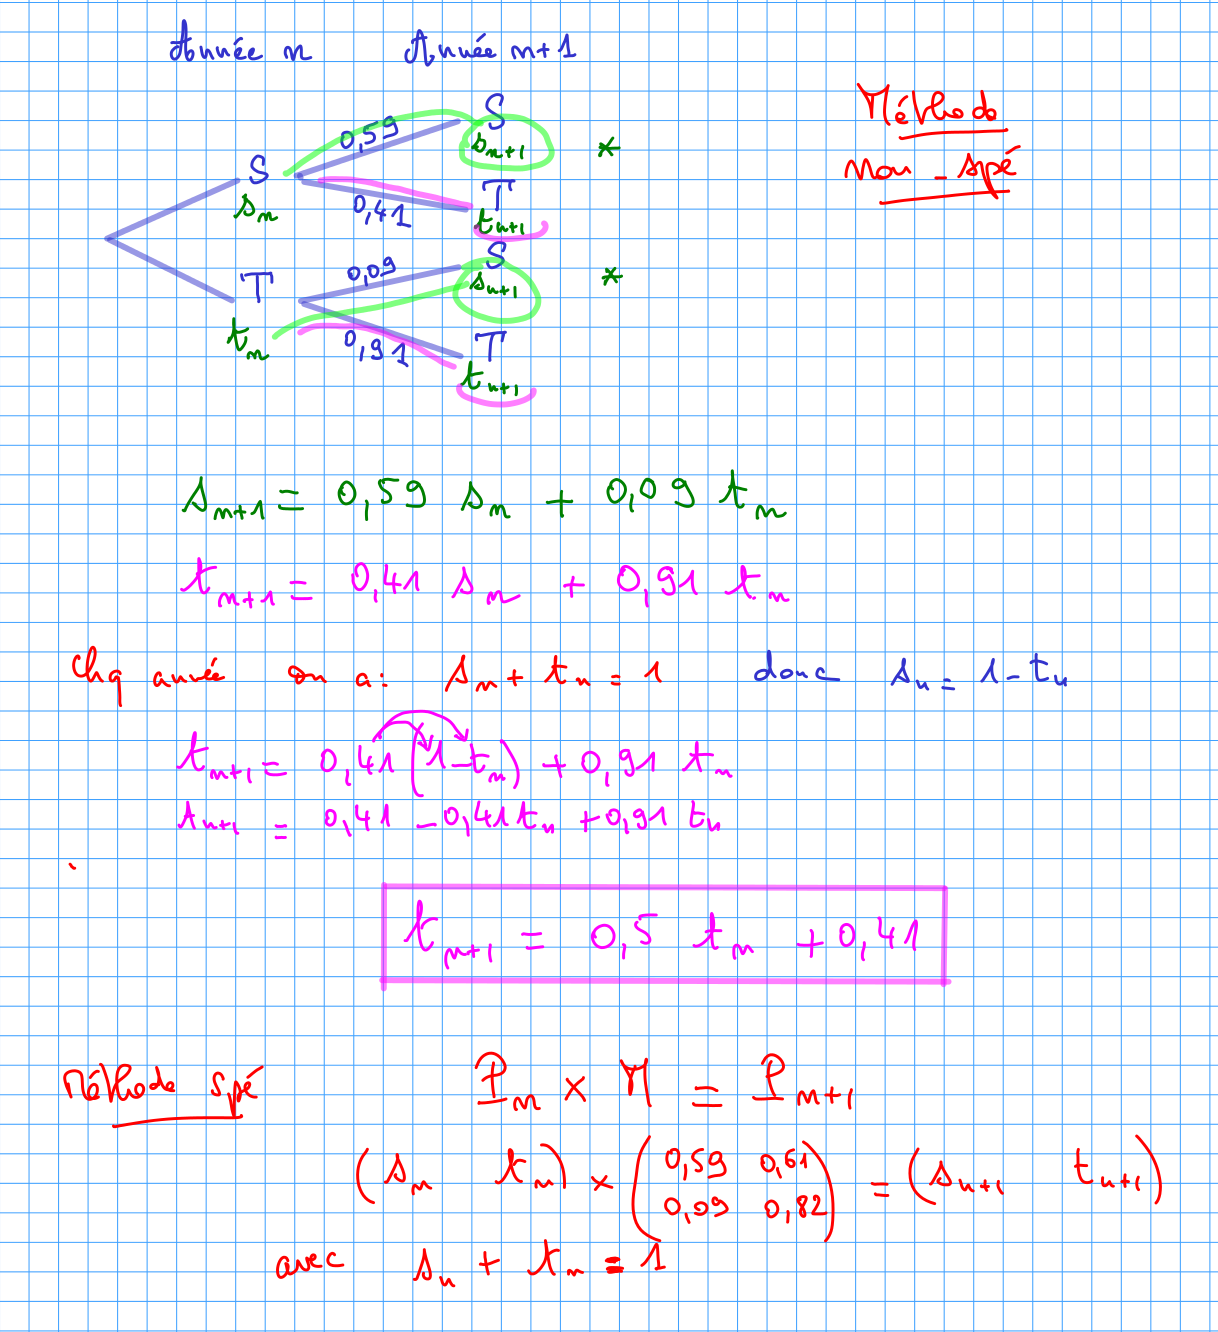 Année n Année n+1
Méthode
non-spé
S 0,59 S
s_n s_{n+1} *
0,41 T
t_{n+1}
T 0,09 S
t_n s_{n+1} *
0,91 T
t_{n+1}
s_{n+1} = 0,59 s_n + 0,09 t_n
t_{n+1} = 0,41 s_n + 0,91 t_n
Chq année on a: s_n + t_n = 1 donc s_n = 1 - t_n
t_{n+1} = 0,41 (1 - t_n) + 0,91 t_n
t_{n+1} = 0,41 - 0,41 t_n + 0,91 t_n
t_{n+1} = 0,5 t_n + 0,41
Méthode spé P_n × M = P_{n+1}
(s_n t_n) × (0,59 0,61
0,09 0,82) = (s_{n+1} t_{n+1})
avec s_n + t_n = 1